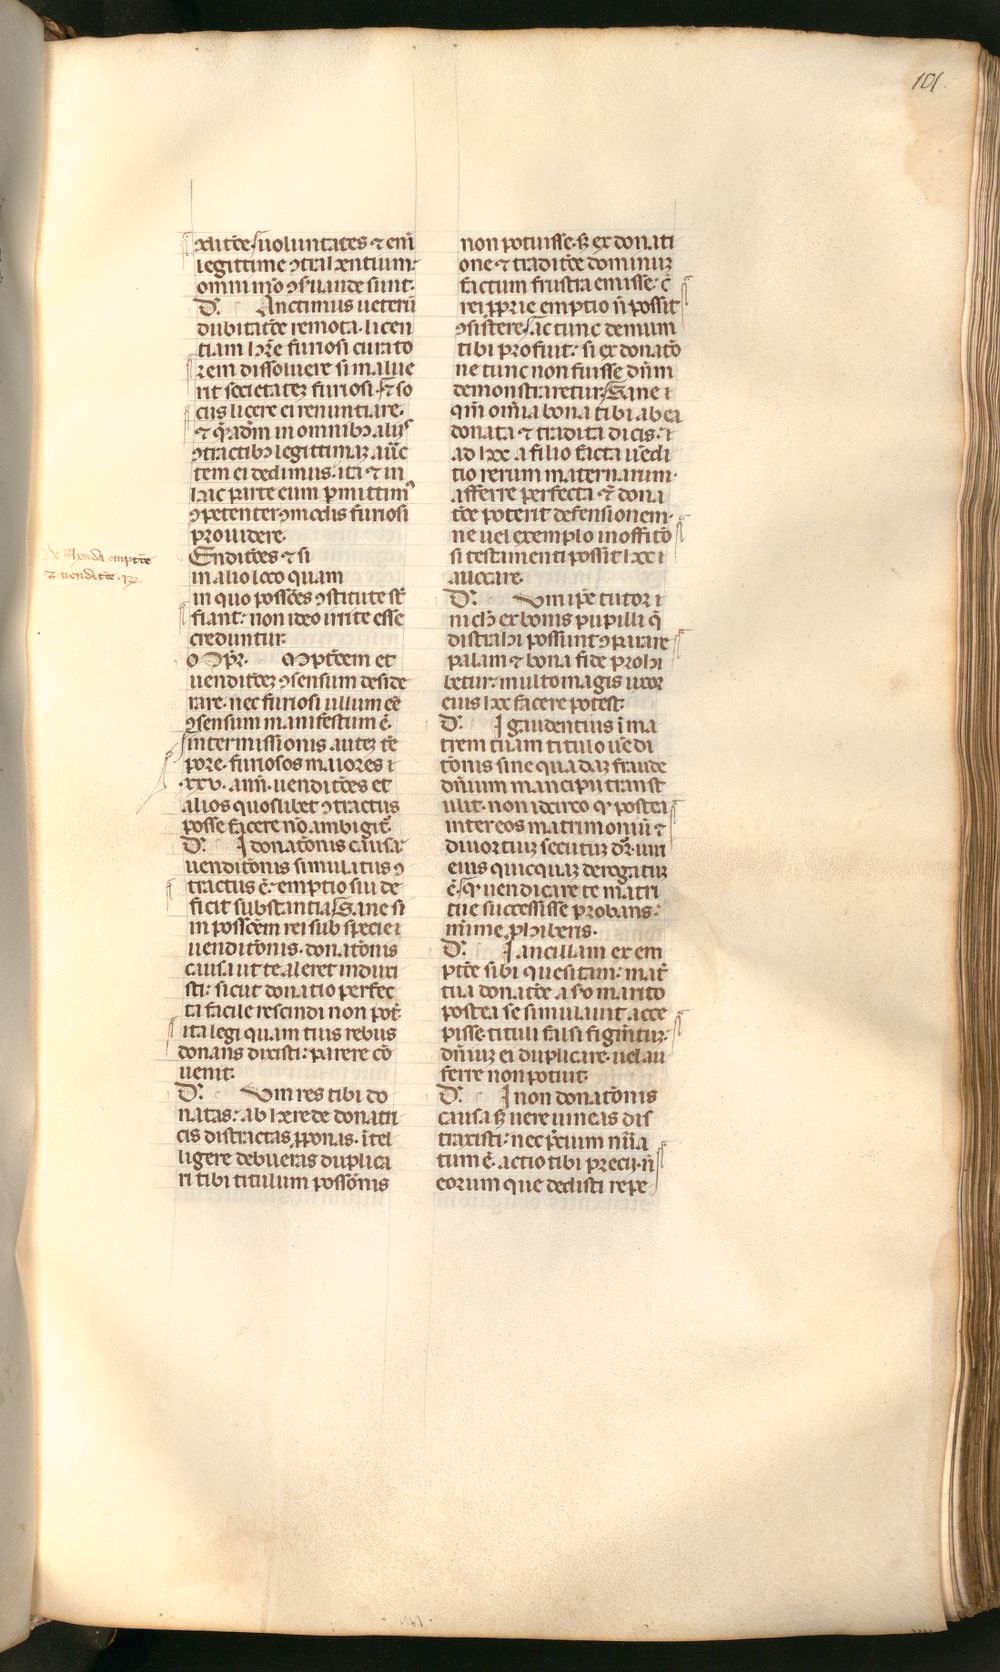 101.
xditōe. uoluntates ⁊ eni᷑
legittime ꝯtrahentium.
omnimō ꝯẜuande sunt.
D᷑. Anctimus ueterū
dubitatōe remota. licen
tiam hr̄e furiosi curato
rem dissoluere si malue
rit societateꝫ furiosi. ⁊ so
ciis licere ei renuntiare.
⁊ q̄admō in omnibꝫ alijs
ꝯtractibꝫ legittimaꝫ auc̄
tem ei dedimus. ita ⁊ in
hac parte eum ꝑmittimꝰ
ꝯpetenter ꝯmodis furiosi
prouidere.
De ꝯtrahenda emptōe
⁊ uenditōe. ꝶ.
Enditōes ⁊ si
in alio loco quam
in quo possōes ꝯstitute st̄
fiant: non ideo irrite esse
creduntur.
Mptōem et
uenditōeꝫ ꝯsensum deside
rare. nec furiosi ullum eē
ꝯsensum manifestum ē.
intermissionis auteꝫ tē
pore. furiosos maiores ⁊
.xxv. ann. uenditōes et
alios quoslibet ꝯtractus
posse facere nō ambigit᷑.
D᷑. I donatōnis causa
uenditōnis simulatus ꝯ
tractus ē. emptio sui de
ficit substantia. Sane si
in possōem rei sub specie ⁊
uenditōnis. donatōnis
causa ut te aleret induxi
sti: sicut donatio perfec
ta facile rescindi non pōt.
ita legi quam tuis rebus
donans dixisti: parere cō
uenit.
D᷑. Vm res tibi do
natas. ab herede donatri
cis distractas ꝓponas. ītel
ligere debueras duplica
ri tibi titulum possōnis
non potuisse. ꝫ ex donati
one ⁊ traditōe dominuꝫ
factum frustra emisse: c̄
rei ꝓprie emptio n̄ possit
ꝯsistere. ac tunc demum
tibi profuit: si ex donatō
ne tunc non fuisse dn̄m
demonstraretur. Sane ⁊
qm̄ oīa bona tibi ab ea
donata ⁊ tradita dicis. ⁊
ad hoc a filio facta uēdi
tio rerum maternarum.
afferre perfecta ⁊ dona
tōe poterit defensionem.
ne uel exemplo inofficō
si testamenti possit hoc ⁊
auocare.
D᷑. Vm ip̄e tutor ⁊
nich̄ ex bonis pupilli q̄
distrahi possunt ꝯparare
palam ⁊ bona fide prohi
betur: multo magis uxor
eius hoc facere potest.
D᷑. I gaudentius ī ma
trem tuam titulo uēdi
tōnis sine quadaꝫ fraude
dn̄ium mancipii transt
ulit. non idcirco ꝙ postea
inter eos matrimoniū ⁊
diuortiuꝫ secutuꝫ dr̄. iuri
eius quicquaꝫ derogatuꝫ
ē. ꝙ uendicare te matri
tue successisse probans:
minime ꝓhiberis.
D᷑. I ancillam ex em
ptōe sibi quesitam: mat̄
tua donatōe a suo marito
postea se simulauit acce
pisse. tituli falsi figm̄tuꝫ.
dn̄iuꝫ ei duplicare. uel au
ferre non potuit.
D᷑. I non donatōnis
causa ꝫ uere uineas dis
traxisti: nec p̄cium nūa
tum ē. actio tibi precij. n̄
eorum que dedisti repe